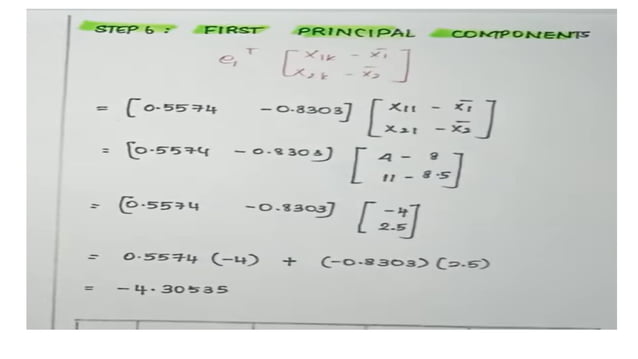 STEP 6 : FIRST PRINCIPAL COMPONENTS
e₁ᵀ [ x₁ₖ - x̄₁
x₂ₖ - x̄₂ ]
= [0.5574 -0.8303] [ x₁₁ - x̄₁
x₂₁ - x̄₂ ]
= [0.5574 -0.8303] [ 4 - 8
11 - 8.5 ]
= [0.5574 -0.8303] [ -4
2.5 ]
= 0.5574 (-4) + (-0.8303) (2.5)
= -4.30535